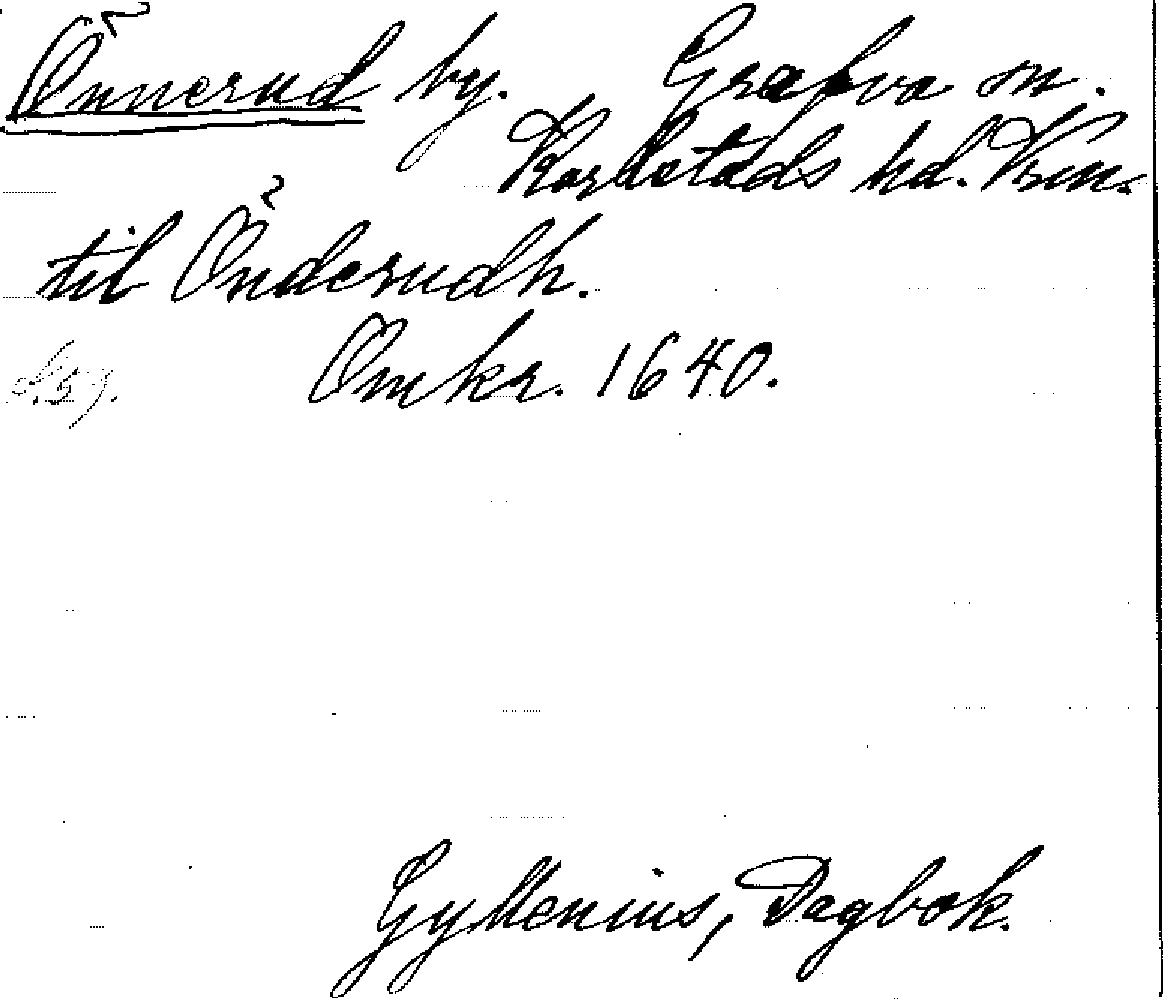 Önnerud by. Grafva sn.
Karlstads hd. Vrm.
til Önderudh.
Omkr. 1640.
s. 59.
Gyllenius, Dagbok.